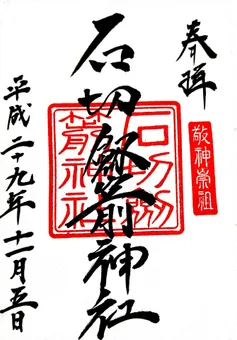 奉拝
敬神崇祖
石切劔箭神社
石切劔箭神社
平成二十九年十一月五日